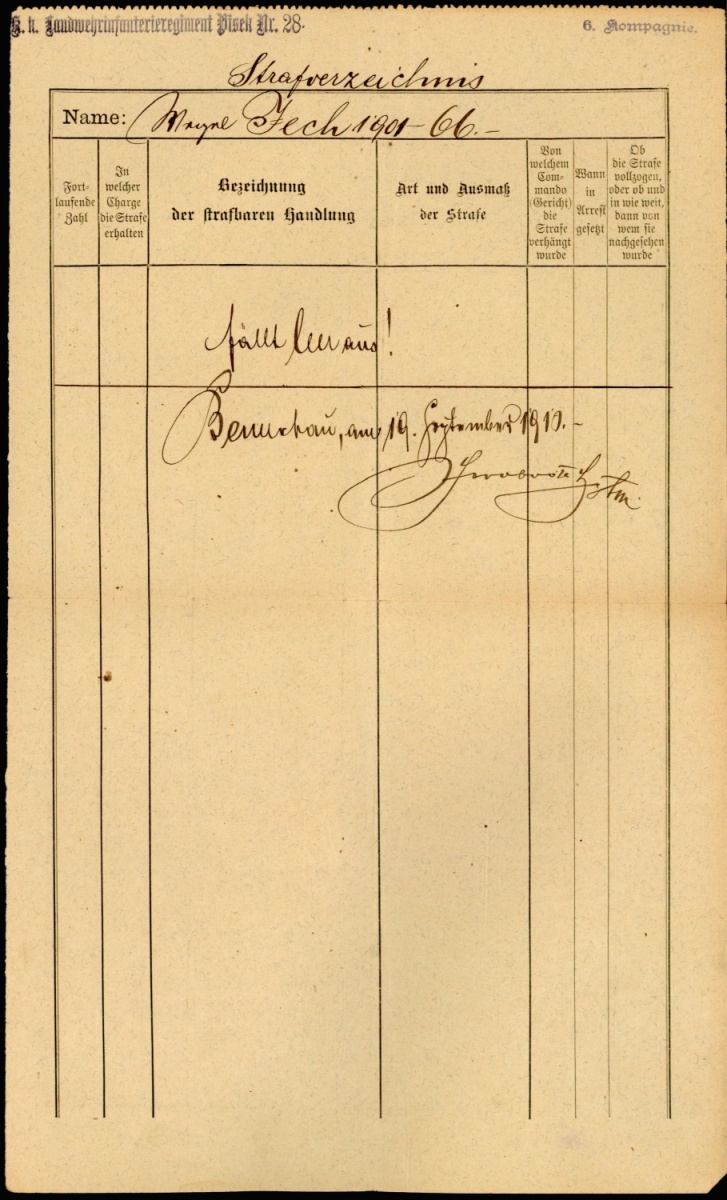 K. k. Landwehrinfanterieregiment Pisek Nr. 28.
6. Kompagnie.
Strafverzeichnis
Name: Zech 1901-66.-
Fort-
laufende
Zahl
In
welcher
Charge
die Strafe
erhalten
Bezeichnung
der strafbaren Handlung
Art und Ausmaß
der Strafe
Von
welchem
Com-
mando
(Gericht)
die
Strafe
verhängt
wurde
Wann
in
Arrest
gesetzt
Ob
die Strafe
vollzogen,
oder ob und
in wie weit,
dann von
wem sie
nachgesehen
wurde
fällt leer aus!
Beneschau, am 19. September 1910.-